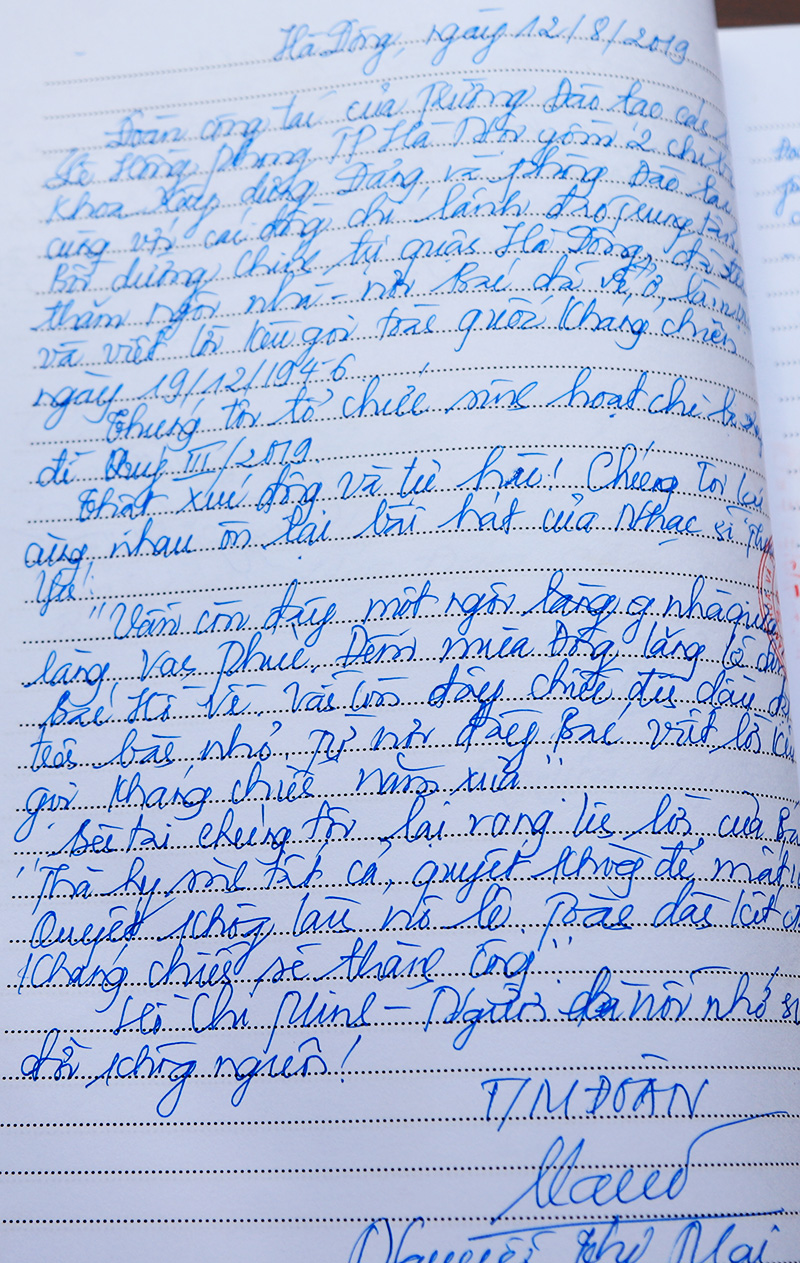 Hà Đông, ngày 12/8/2019
Đoàn công tác của Trường Đào tạo cán
Lê Hồng Phong TP Hà Nội gồm 2 chi
khoa Xây dựng Đảng và phòng Đào tạo
cùng với các đồng chí lãnh đạo Trung tâm
Bồi dưỡng chính trị quận Hà Đông, đã
thăm ngôi nhà - nơi Bác đã về, ở, làm
và viết lời kêu gọi toàn quốc kháng chiến
ngày 19/12/1946.
Chúng tôi tổ chức sinh hoạt chi bộ
đề Quý III/2019
Thật xúc động và tự hào! Chúng tôi lại
cùng nhau ôn lại bài hát của Nhạc sĩ
"Vẫn còn đây một ngôi nhà
làng Vạn Phúc. Đêm mùa Đông lặng lẽ
Bác Hồ về. Vẫn còn đây chiếc đèn dầu
trên bàn nhỏ. Từ nơi đây Bác viết lời
gọi kháng chiến năm xưa"
Bên tai chúng tôi lại vang lên lời của
"Thà hy sinh tất cả, quyết không để mất
Quyết không làm nô lệ. Toàn dân
Kháng chiến sẽ thắng lợi"
Hồ Chí Minh - Người là nỗi nhớ
đời không nguôi!
T/M ĐOÀN
Nguyễn Thị Mai